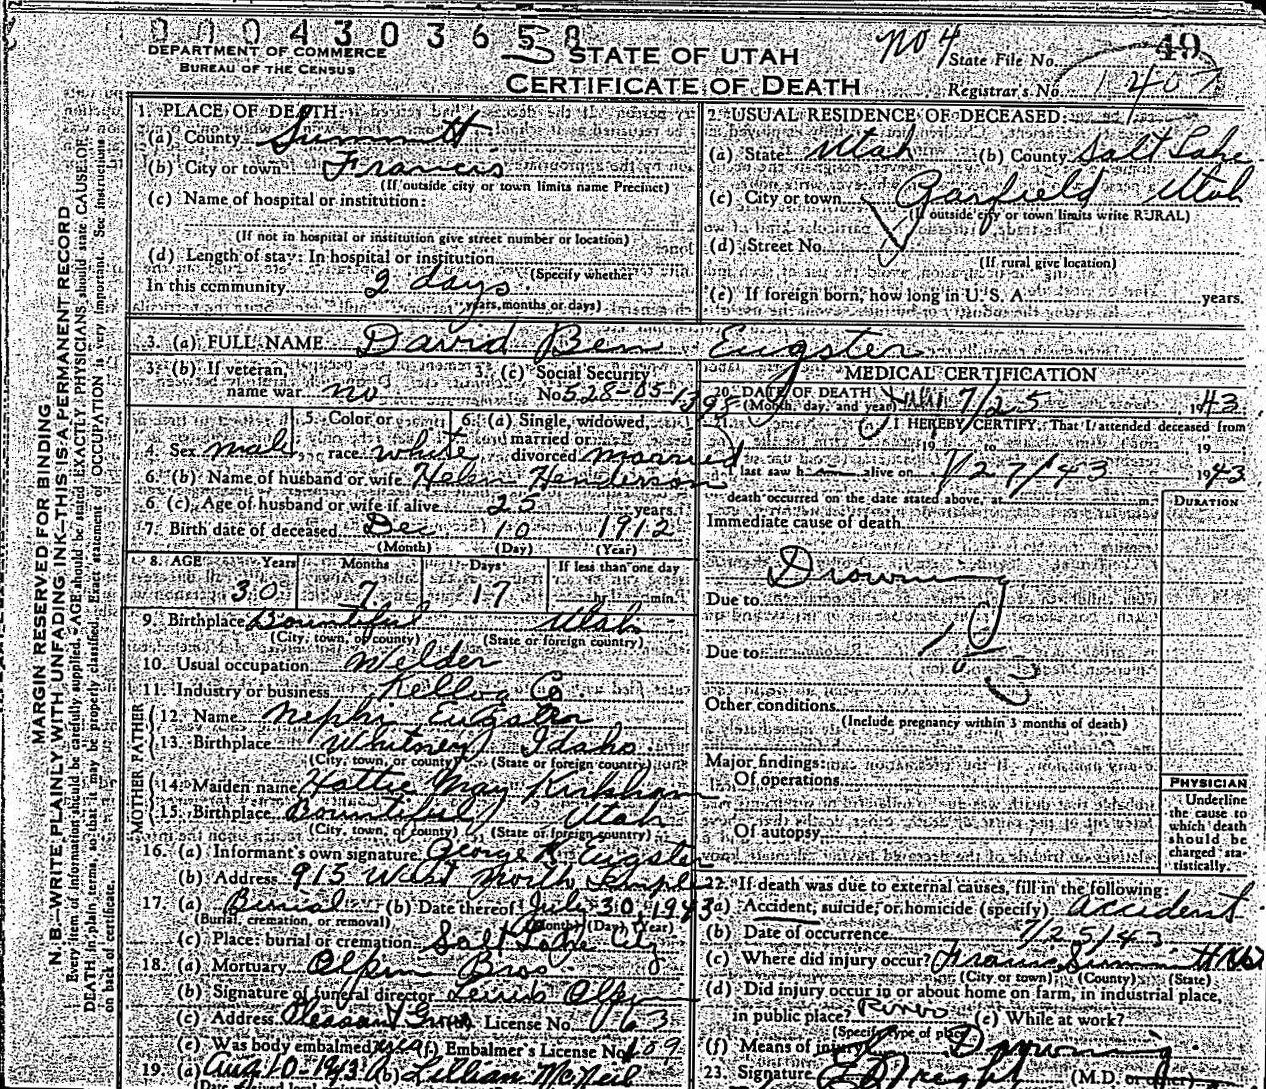 0004303658
DEPARTMENT OF COMMERCE
BUREAU OF THE CENSUS
STATE OF UTAH
CERTIFICATE OF DEATH
No 4
49
State File No.
Registrar's No. 1407
MARGIN RESERVED FOR BINDING
N. B.—WRITE PLAINLY WITH UNFADING INK—THIS IS A PERMANENT RECORD
Every item of information should be carefully supplied. AGE should be stated EXACTLY. PHYSICIANS should state CAUSE OF
DEATH in plain terms, so that it may be properly classified. Exact statement of OCCUPATION is very important. See instructions
on back of certificate.
1. PLACE OF DEATH:
(a) County Summitt
(b) City or town Francis
(If outside city or town limits name Precinct)
(c) Name of hospital or institution:
(If not in hospital or institution give street number or location)
(d) Length of stay: In hospital or institution
(Specify whether
In this community 2 days
years, months or days)
2. USUAL RESIDENCE OF DECEASED:
(a) State Utah (b) County Salt Lake
(c) City or town Garfield Utah
(If outside city or town limits write RURAL)
(d) Street No.
(If rural give location)
(e) If foreign born, how long in U. S. A. years.
3. (a) FULL NAME David Ben Eugster
3. (b) If veteran, name war no
3. (c) Social Security No. 528-05-1398
4. Sex male
5. Color or race white
6. (a) Single, widowed, married or divorced married
6. (b) Name of husband or wife Helen Henderson
6 (c). Age of husband or wife if alive 25 years.
7. Birth date of deceased Dec 10 1912
(Month) (Day) (Year)
8. AGE Years Months Days If less than one day
30 7 17 hr. min.
9. Birthplace Bountiful Utah
(City, town, or county) (State or foreign country)
10. Usual occupation Welder
11. Industry or business Co.
FATHER
12. Name Nephi Eugster
13. Birthplace Whitney Idaho
(City, town, or county) (State or foreign country)
MOTHER
14. Maiden name Hattie May Kirkham
15. Birthplace Bountiful Utah
(City, town, or county) (State or foreign country)
16. (a) Informant's own signature George R. Eugster
(b) Address 915 West North Temple
17. (a) Burial (b) Date thereof July 30, 1943
(Burial, cremation, or removal) (Month) (Day) (Year)
(c) Place: burial or cremation Salt Lake City
18. (a) Mortuary Olpin Bros
(b) Signature of funeral director Olpin
(c) Address Pleasant Grove License No. 63
(e) Was body embalmed yes (f) Embalmer's License No. 109
19. (a) Aug 10-1943 (b) Lillian McNeil
(Date
MEDICAL CERTIFICATION
20. DATE OF DEATH July 7/25 1943
(Month, day, and year)
21. I HEREBY CERTIFY, That I attended deceased from
19 to 19
I last saw h alive on 7/27/43 1943
death occurred on the date stated above, at m.
DURATION
Immediate cause of death
Drowning
Due to
Due to
Other conditions
(Include pregnancy within 3 months of death)
Major findings:
Of operations
Of autopsy
PHYSICIAN
Underline
the cause to
which death
should be
charged sta-
tistically.
22. If death was due to external causes, fill in the following:
(a) Accident, suicide, or homicide (specify) accident
(b) Date of occurrence 7/25/43
(c) Where did injury occur? Francis Summitt
(City or town) (County) (State)
(d) Did injury occur in or about home on farm, in industrial place,
in public place? (e) While at work?
(Specify type of place)
(f) Means of injury Drowning
23. Signature (M.D.